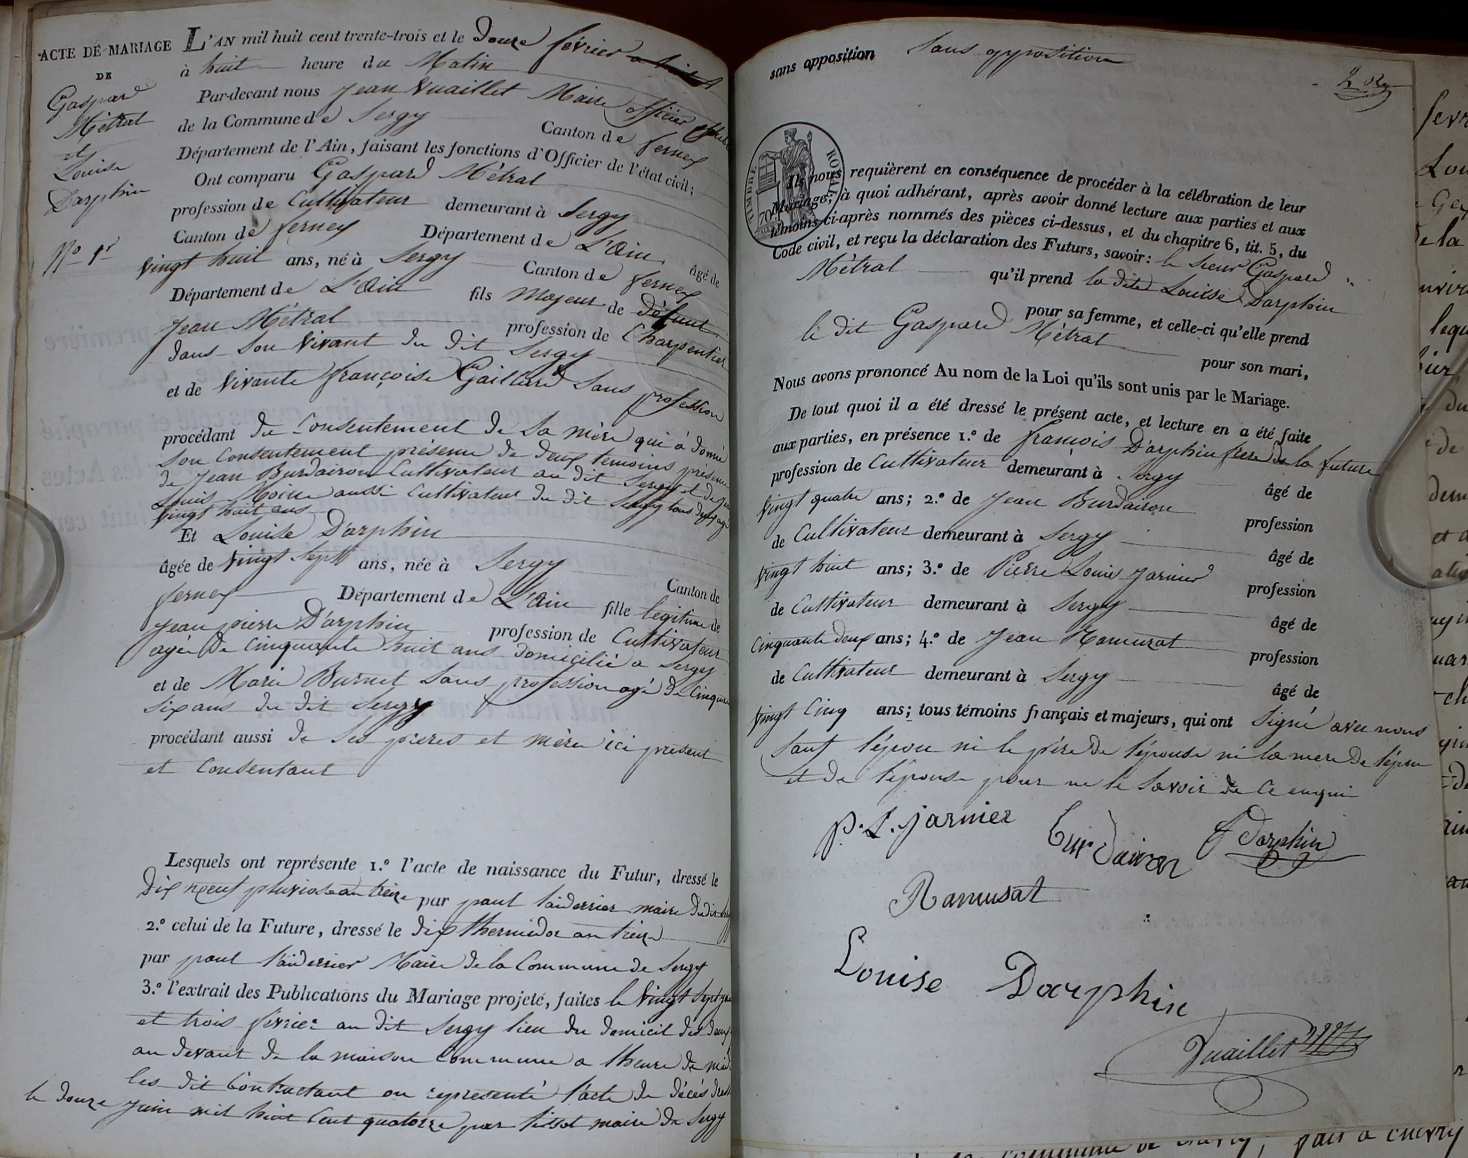 ACTE DE MARIAGE
DE
Gaspard
Métral
et
Louise
Darphin
No 1r
L'AN mil huit cent trente-trois et le douze février
à huit heure du Matin
Par-devant nous Jean Vuaillet Maire officier
de la Commune de Sergy Canton de ferney
Département de l'Ain, faisant les fonctions d'Officier de l'état civil;
Ont comparu Gaspard Métral
profession de Cultivateur demeurant à Sergy
Canton de ferney Département de L'Ain âgé de
vingt huit ans, né à Sergy Canton de ferney
Département de L'Ain fils Majeur de défunt
Jean Métral profession de Charpentier
dans Son vivant du dit Sergy
et de vivante françoise Gaillard Sans profession
procédant du Consentement de Sa mère qui a donné
Son Consentement présence de deux temoins
de Jean Burdairon Cultivateur au dit Sergy et de
Louis Moine aussi Cultivateur du dit Sergy tous deux agé
vingt huit ans
Et Louise Darphin
âgée de vingt Sept ans, née à Sergy Canton de
ferney Département de L'Ain fille légitime de
Jean pierre Darphin profession de Cultivateur
agée De Cinquante huit ans domicilié a Sergy
et de Marie Burnet Sans profession agé de Cinquante
Six ans du dit Sergy
procédant aussi de Ses pieres et mère ici present
et Consentant
Lesquels ont représente 1.° l'acte de naissance du Futur, dressé le
Dix neuf pluviose an treize par paul maire du dit
2.° celui de la Future, dressé le dix thermidor an treize
par paul Maire de la Commune de Sergy
3.° l'extrait des Publications du Mariage projeté, faites le vingt Sept
et trois février au dit Sergy lieu du domicil des deux
au devant de la maison Commune a lheure de midi
les dit Contractant on représenté l'acte de décès
le douze Juin mil huit Cent quatorze par maire de Sergy
sans opposition Sans opposition
TIMBRE ROYAL
70
Ils nous requièrent en conséquence de procéder à la célébration de leur
Mariage; à quoi adhérant, après avoir donné lecture aux parties et aux
témoins ci-après nommés des pièces ci-dessus, et du chapitre 6, tit. 5, du
Code civil, et reçu la déclaration des Futurs, savoir: le Sieur Gaspard
Métral qu'il prend la dite Louise Darphin
pour sa femme, et celle-ci qu'elle prend
le dit Gaspard Métral pour son mari,
Nous avons prononcé Au nom de la Loi qu'ils sont unis par le Mariage.
De tout quoi il a été dressé le présent acte, et lecture en a été faite
aux parties, en présence 1.° de françois Darphin frere de la future
profession de Cultivateur demeurant à Sergy âgé de
vingt quatre ans; 2.° de Jean Burdairon profession
de Cultivateur demeurant à Sergy âgé de
vingt huit ans; 3.° de Pierre Louis Jarnier profession
de Cultivateur demeurant à Sergy âgé de
Cinquante deux ans; 4.° de Jean Ramusat profession
de Cultivateur demeurant à Sergy âgé de
vingt Cinq ans; tous témoins français et majeurs, qui ont Signé avec nous
Sauf l'épou ni le père de l'épouse ni la mere de l'épou
et de l'épouse pour ne le Savoir de Ce enquis
p. L. jarnier
burdairon
f Darphin
Ramusat
Louise Darphin
Vuaillet